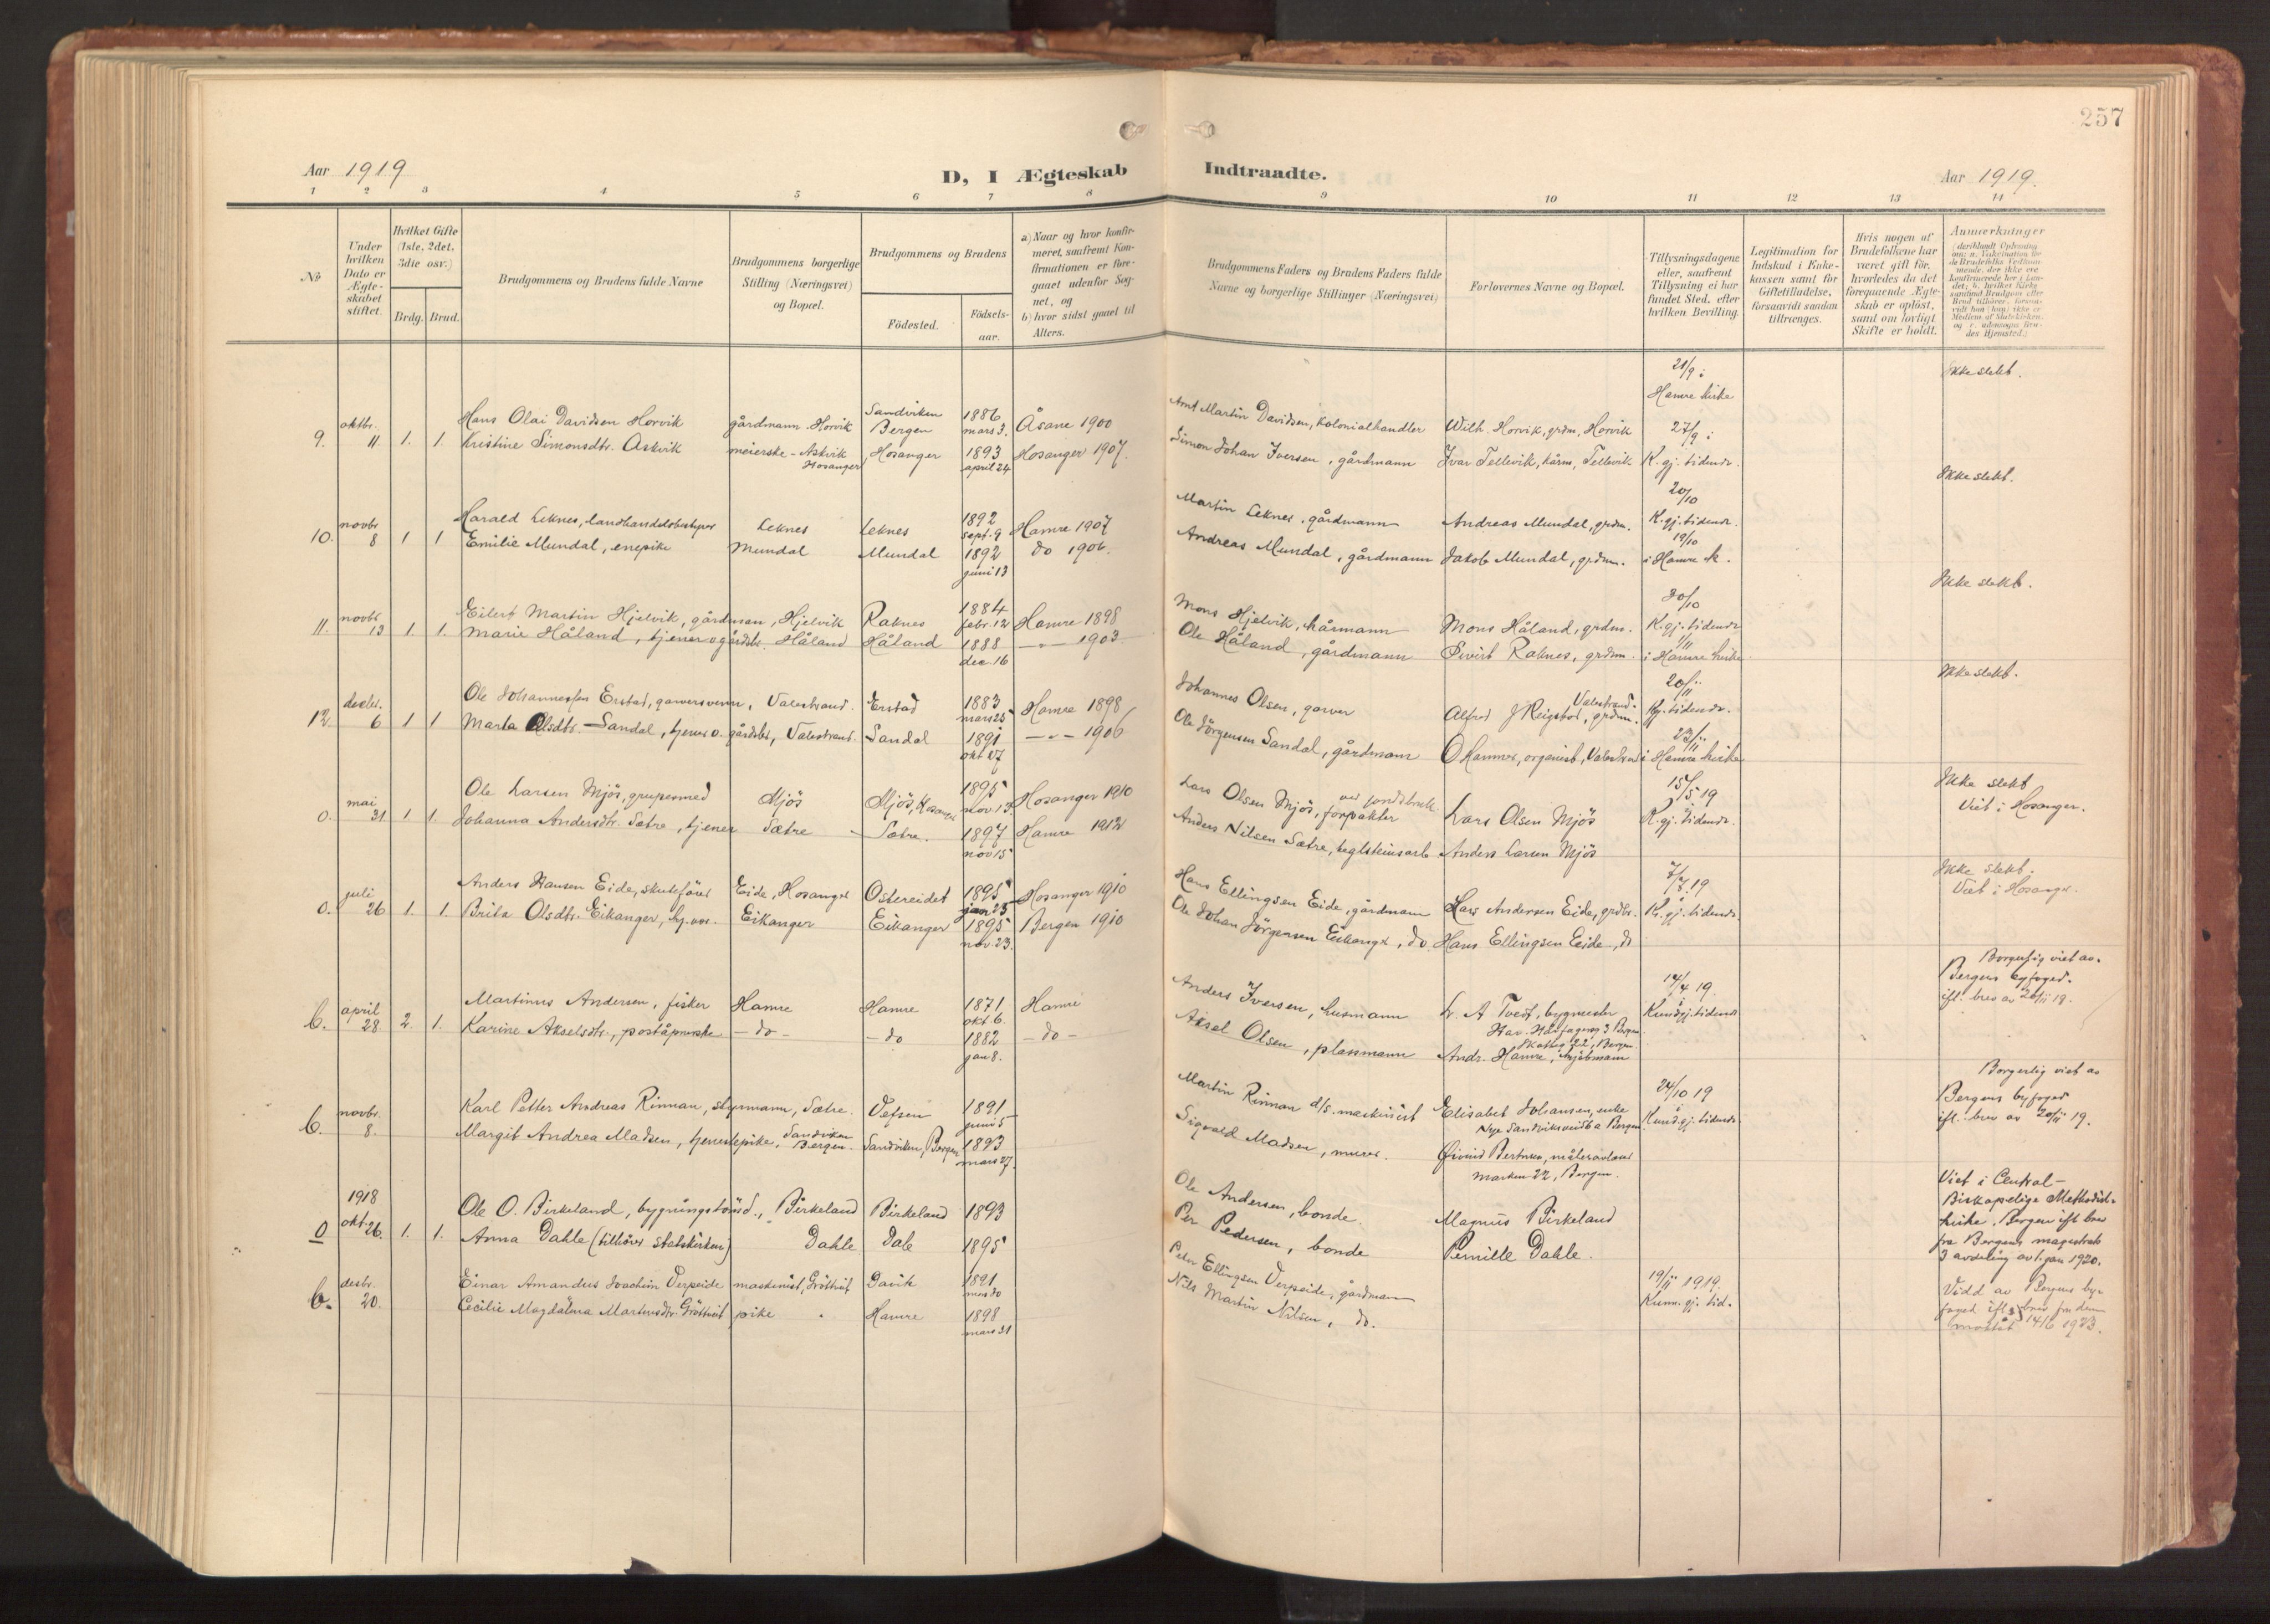 257
Aar 1919
D, I Ægteskab Indtraadte.
Aar 1919.
1 2 3 4 5 6 7 8 9 10 11 12 13 14
No
Under hvilken Dato er Ægteskabet stiftet.
Hvilket Gifte (1ste, 2det, 3die osv.)
Brdg. Brud.
Brudgommens og Brudens fulde Navne
Brudgommens borgerlige Stilling (Næringsvei) og Bopæl.
Brudgommens og Brudens
Fødested.
Fødselsaar.
a) Naar og hvor konfirmeret, saafremt Konfirmationen er foregaaet udenfor Sognet, og
b) hvor sidst gaaet til Alters.
Brudgommens Faders og Brudens Faders fulde Navne og borgerlige Stillinger (Næringsvei)
Forlovernes Navne og Bopæl.
Tillysningsdagene eller, saafremt Tillysning ei har fundet Sted, efter hvilken Bevilling.
Legitimation for Indskud i Enkekassen samt for Giftetilladelse, forsaavidt saadan tiltrænges.
Hvis nogen af Brudefolkene har været gift før, hvorledes da det foregaaende Ægteskab er opløst, samt om lovligt Skifte er holdt.
Anmærkninger
9. oktbr. 11 1. 1.
Hans Olai Davidsen Horvik gårdmann Horvik Sandviken Bergen 1886 mars 3. Åsane 1900
Kristine Simonsdtr. Askvik meierske - Askvik Hosanger Hosanger 1893 april 24 Hosanger 1907.
Arnt Martin Davidsen, kolonialhandler Wilh. Horvik, grdm, Horvik 21/9 i Hamre kirke Ikke slekt.
Simon Johan Iversen, gårdmann Ivar Tellevik, hårm, Tellevik 27/9 i K. gj. tidende.
10. novbr 8 1 1
Harald Leknes, landhandelsbestyrer Leknes Leknes 1892 sept. 9 Hamre 1907
Emilie Mundal, enepike Mundal Mundal 1892 juni 13 do 1906.
Martin Leknes, gårdmann Andreas Mundal, grdm. 20/10 K. gj. tidende. Ikke slekt.
Andreas Mundal, gårdmann Jakob Mundal, grdm. 19/10 i Hamre k.
11. novbr 13 1. 1.
Eilert Martin Hjelvik, gårdmann, Hjelvik Raknes 1884 febr. 12 Hamre 1898
Marie Håland, tjener o gårdsbr. Håland Håland 1888 dec. 16 —"— 1903
Mons Hjelvik, hårmann Mons Håland, grdm. 30/10 K. gj. tidende Ikke slekt.
Ole Håland, gårdmann Sivirt Raknes, grdm. 1/11 i Hamre kirke
12. desbr. 6 1 1
Ole Johannessen Erstad, garversvenn, Valestrand. Erstad 1883 mars 25 Hamre 1898
Marta Olsdtr. Sandal, tjener o. gårdsbr, Valestrand. Sandal 1891 okt 27 —"— 1906
Johannes Olsen, garver Alfred J Reigstad, grdm. Valestrand. 20/11 K.gj. tidende. Ikke slekt.
Ole Jörgensen Sandal, gårdmann O Hamre, organist, Valestrand 23/11 i Hamre kirke
0. mai 31 1 1.
Ole Larsen Mjös, Mjös Mjös, Hosanger 1895 nov 13. Hosanger 1910
Johanna Andersdtr. Sætre, tjener Sætre Sætre. 1897 nov 15 Hamre 1912
Lars Olsen Mjös, forpakter Lars Olsen Mjös 15/5 19 K. gj. tidende. Ikke slekt
Viet i Hosanger.
Anders Nilsen Sætre, teglsteinsarb Anders Larsen Mjös
0. juli 26 1. 1.
Anders Hansen Eide, skutefører Eide, Hosanger Ostereidet 1895 Hosanger 1910
Brita Olsdtr. Eikanger, Eikanger Eikanger 1895 nov 23. Bergen 1910
Hans Ellingsen Eide, gårdmann Hans Andersen Eide, grdbr. 7/7. 19 K. gj. tidende. Ikke slekt.
Viet i Hosanger.
Ole Johan Jörgensen Eikanger, do Hans Ellingsen Eide, do
b. april 28 2. 1.
Martinus Andersen, fisker Hamre Hamre 1871 okt 6. Hamre
Karine Akselsdtr., poståpnerske - do - - do 1882 jan 8. - do -
Anders Iversen, husmann L. A Tveit, bygmester 14/4 19. Kundgj. tidende Borgerlig viet av Bergens byfoged.
ifl. brev av 20/11 19.
Har. Hårfagersg 3 Bergen
Aksel Olsen, plassmann Andr. Hamre, 22, Bergen
b. novbr. 8.
Karl Petter Andreas Rinnan, styrmann, Sætre. Vefsen 1891 juni 5
Margit Andrea Madsen, tjenestepike, Sandviken Bergen. Sandviken, Bergen 1893 mars 27.
Martin Rinnan d/s. maskinist Elisabet Johansen, enke 24/10 19 Kundgj. tidende Borgerlig viet av Bergens byfoged
ifl. brev av 20/11 19.
Sigvald Madsen, murer. Øivind Berntsen, marken 22, Bergen.
0 1918 okt. 26. 1. 1.
Ole O. Birkeland, Birkeland Birkeland 1893
Anna Dahle (tilhører statskirken) Dahle Dale 1895
Ole Andersen, bonde. Magnus Birkeland Viet i Central-
Biskopelige Methodist-
kirke. Bergen ifl brev
fra Bergens magistrat
3 avdeling av 1. jan 1920.
Per Pedersen, bonde Pernille Dahle.
b. desbr. 20.
Einar Amandus Joachim Verpeide maskinist, Gröttveit Davik 1891
Cecilie Magdalena Martinsdtr. Gröttveit pike Hamre 1898 mars 31
Peter Ellingsen Verpeide, gårdmann 19/11 1919. Kunn. gj. tid. Vidd av Bergens by-
foged ifl. brev
14/6 1923.
Nils Martin Nilsen, do.